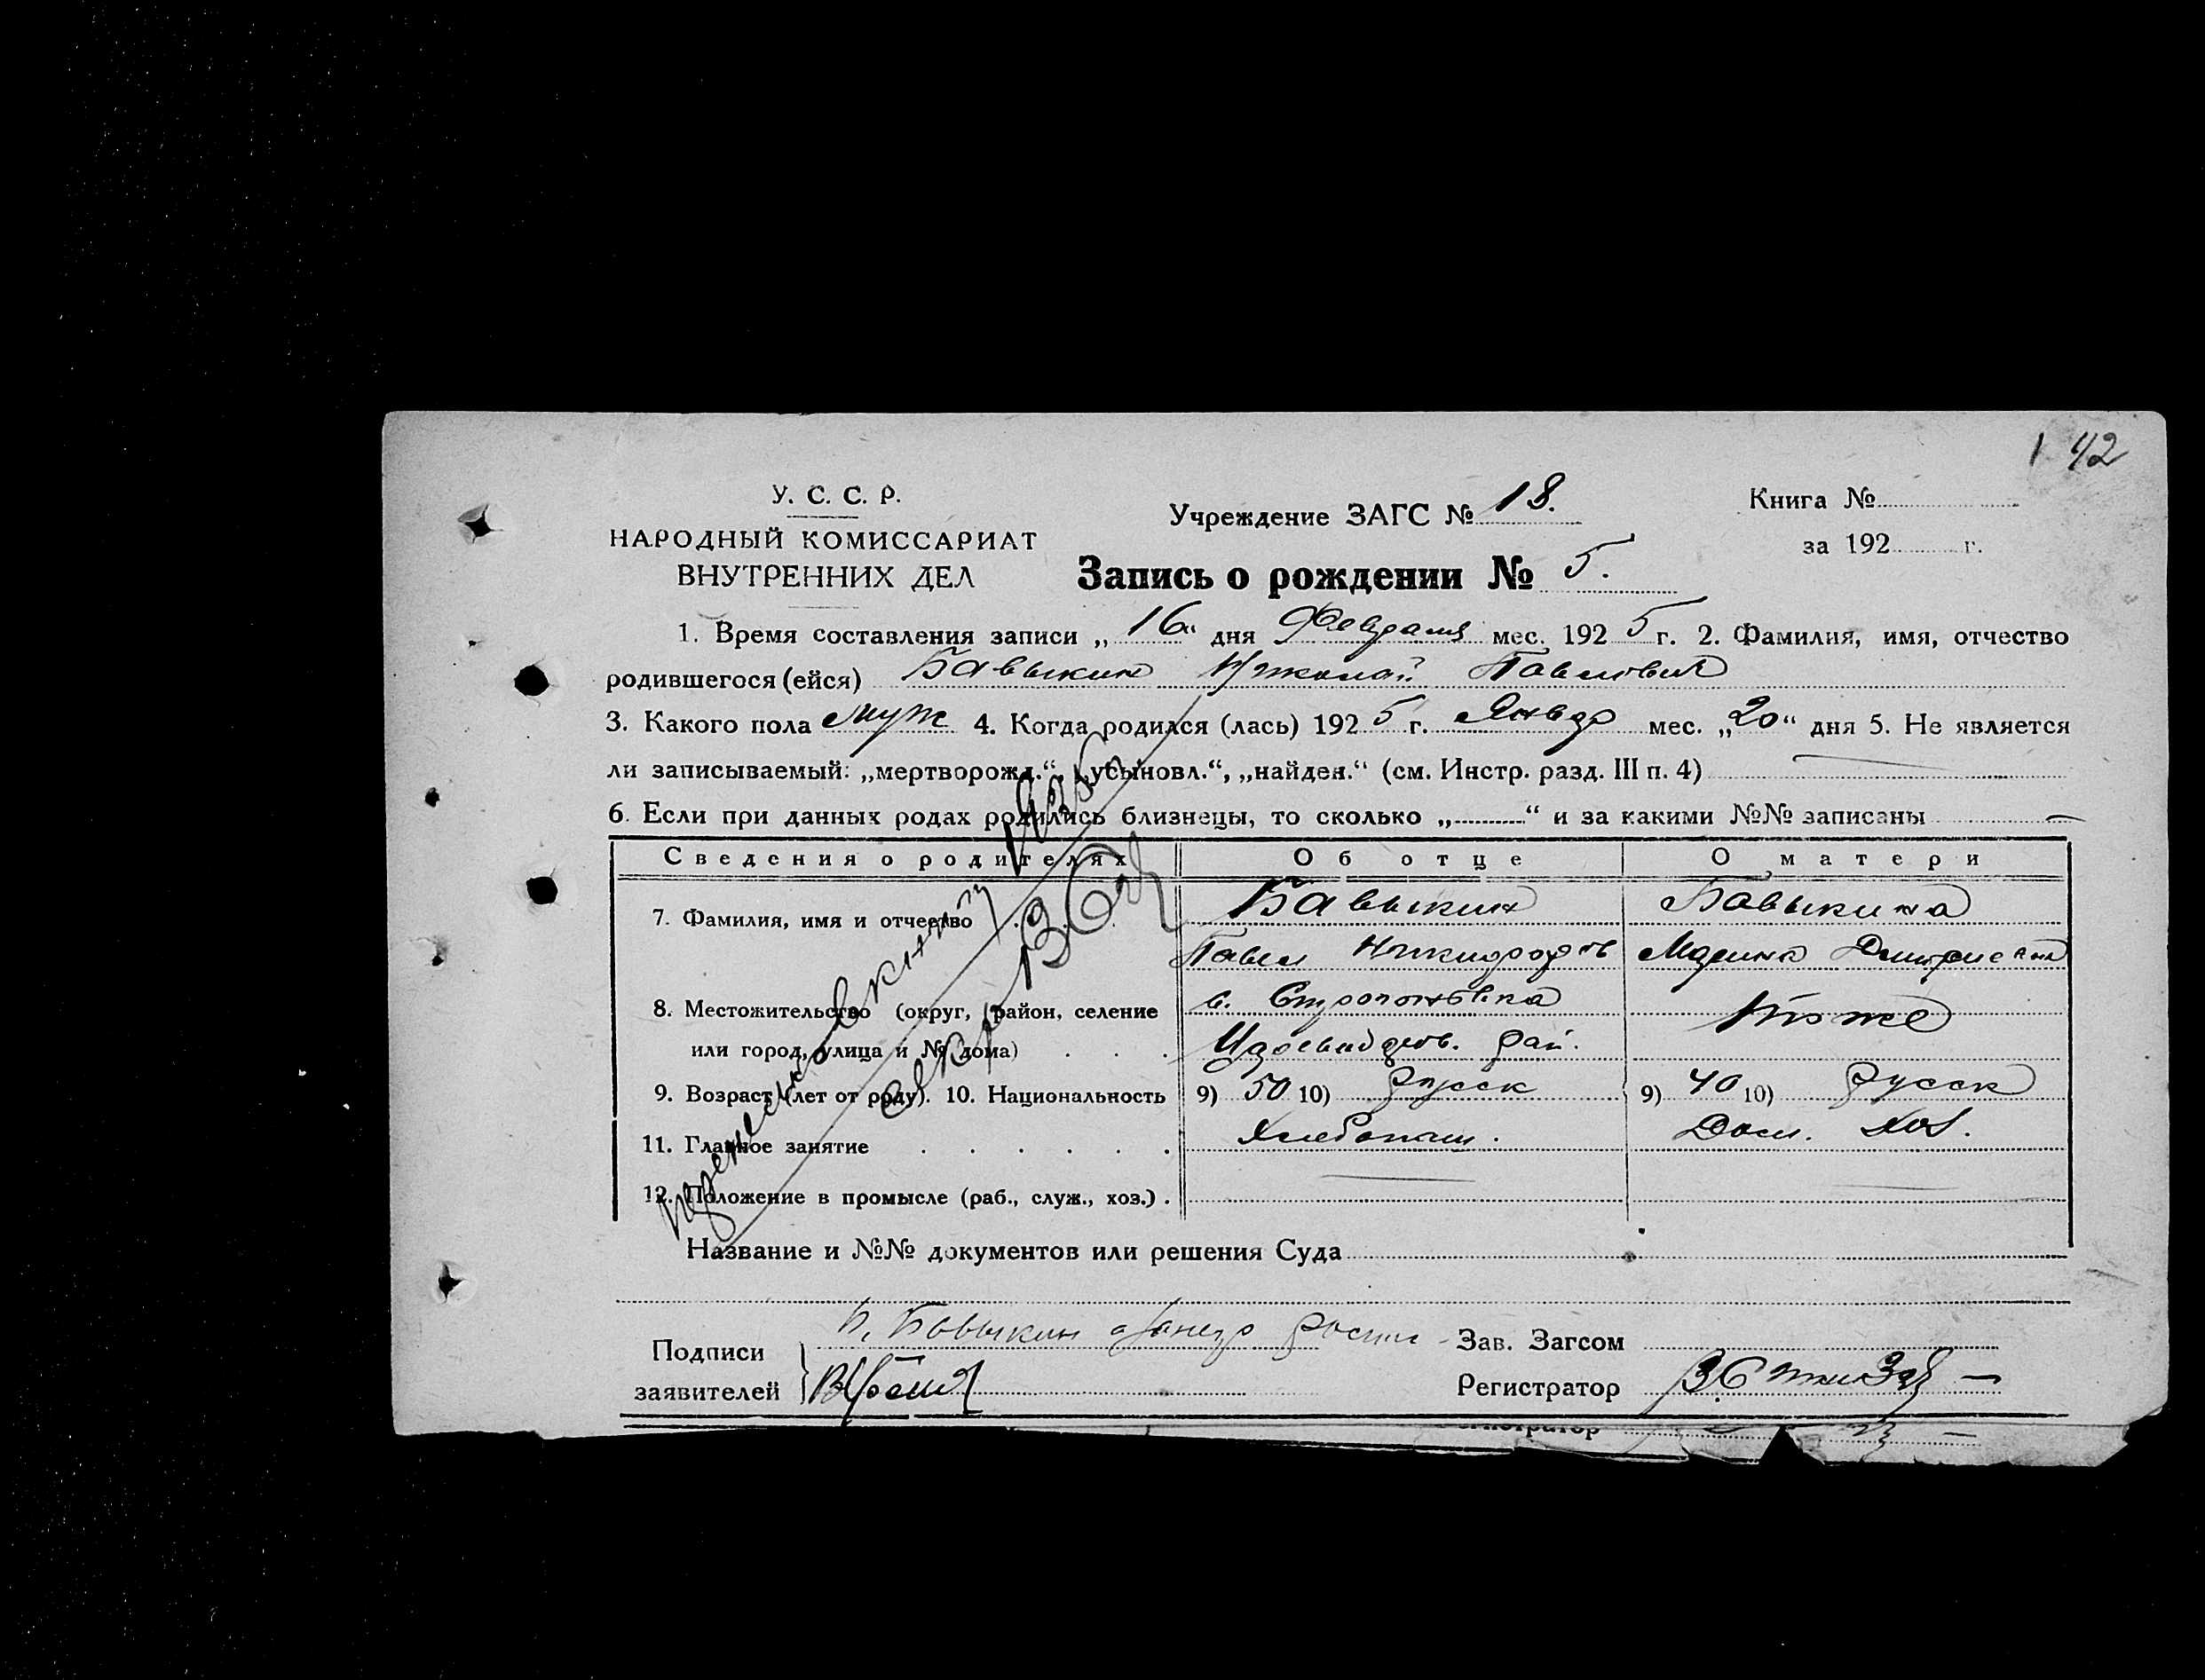 1 42
У. С. С. Р.
НАРОДНЫЙ КОМИССАРИАТ
ВНУТРЕННИХ ДЕЛ
Учреждение ЗАГС № 18.
Книга №
за 192 г.
Запись о рождении № 5.
1. Время составления записи „ 16 “ дня Февраля мес. 192 5 г. 2. Фамилия, имя, отчество
родившегося (ейся) Бавыкин Николай Павлович
3. Какого пола муж 4. Когда родился (лась) 192 5 г. Январ мес. „ 20 “ дня 5. Не является
ли записываемый: „мертворожд.“, „усыновл.“, „найден.“ (см. Инстр. разд. III п. 4)
6. Если при данных родах родились близнецы, то сколько „ “ и за какими №№ записаны
Сведения о родителях Об отце О матери
7. Фамилия, имя и отчество Бавыкин Бавыкина
Павел Никифоров
8. Местожительство (округ, район, селение Тоже
или город, улица и № дома) рай.
9. Возраст (лет от роду). 10. Национальность 9) 50 10) русск 9) 40 10) русск
11. Главное занятие Хлебопаш. Дом. хоз.
12. Положение в промысле (раб., служ., хоз.)
Название и №№ документов или решения Суда
Подписи Бавыкин Зав. Загсом
заявителей Регистратор